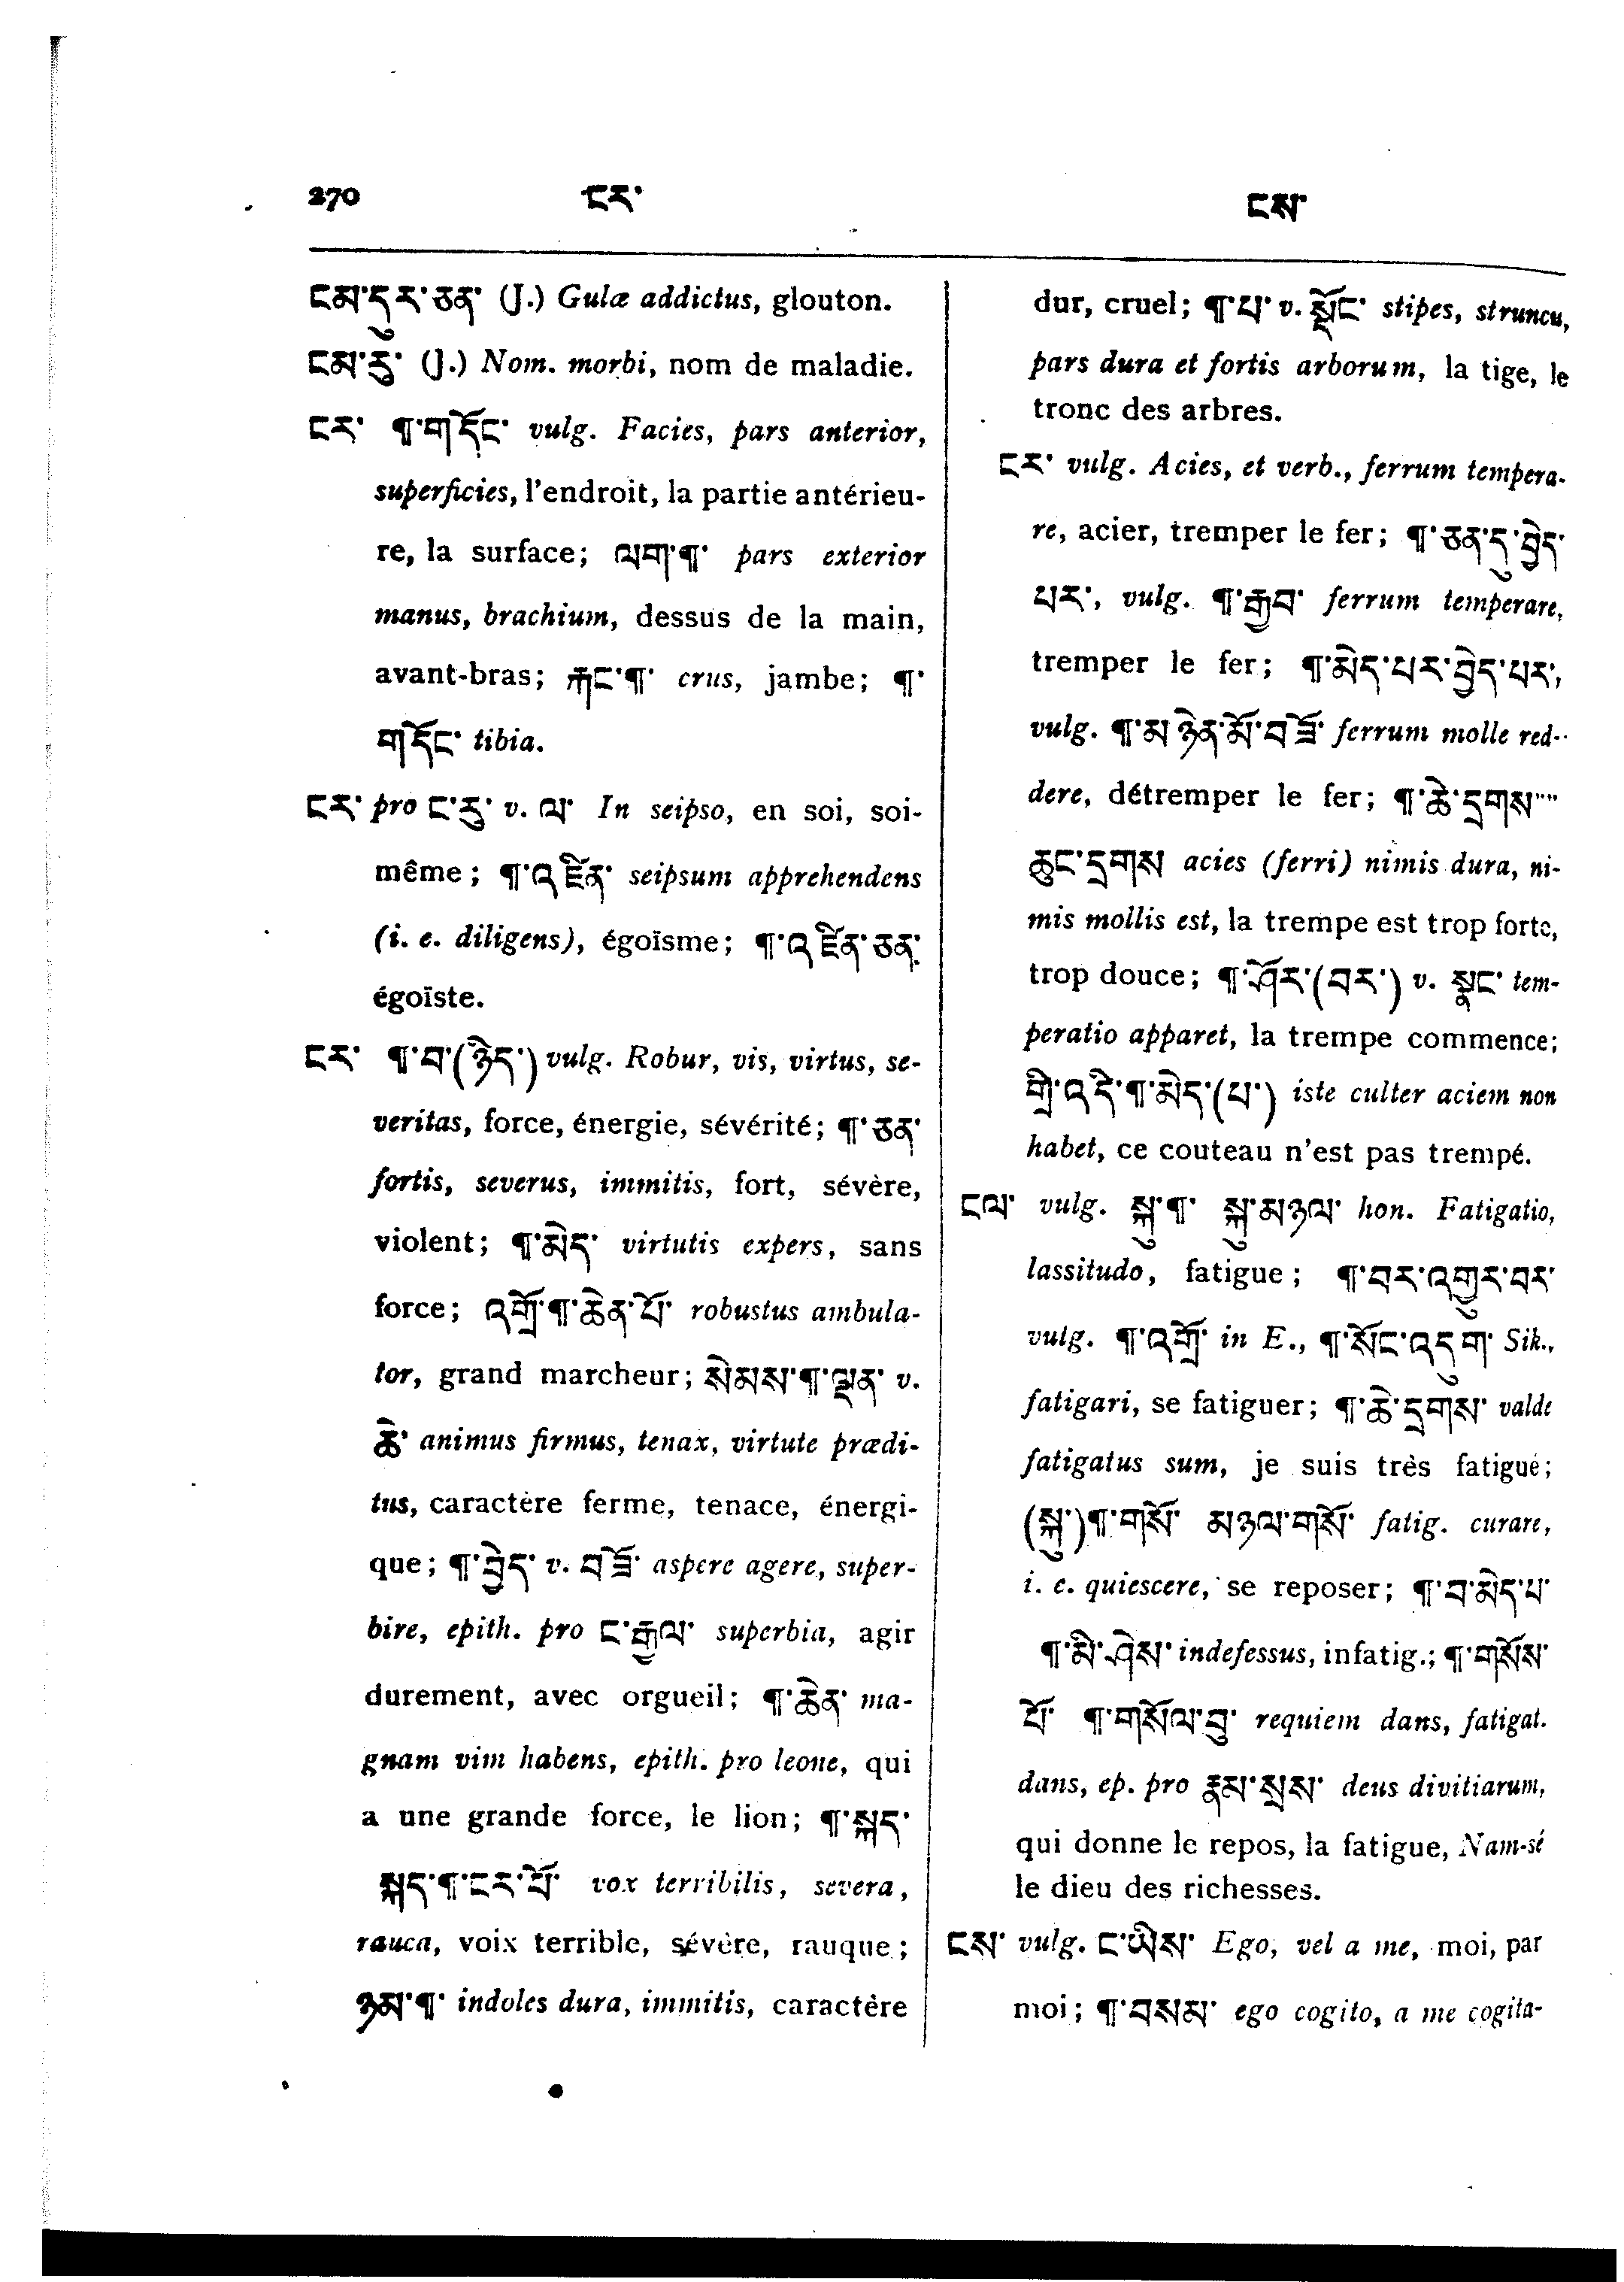 270 ངར་ ངས་
ངམ་དུར་ཅན་ (J.) Gulæ addictus, glouton.
ངམ་རུ་ (J.) Nom. morbi, nom de maladie.
ངར་ ¶་གདོང་ vulg. Facies, pars anterior,
superficies, l'endroit, la partie antérieu-
re, la surface; ལག་¶་ pars exterior
manus, brachium, dessus de la main,
avant-bras; རྐང་¶་ crus, jambe; ¶་
གདོང་ tibia.
ངར་ pro ང་རུ་ v. ལ་ In seipso, en soi, soi-
même; ¶་འཛིན་ seipsum apprehendens
(i. e. diligens), égoïsme; ¶་འཛིན་ཅན་
égoïste.
ངར་ ¶་བ་(ཉིད་) vulg. Robur, vis, virtus, se-
veritas, force, énergie, sévérité; ¶་ཅན་
fortis, severus, immitis, fort, sévère,
violent; ¶་མེད་ virtutis expers, sans
force; འགྲོ་¶་ཆེན་པོ་ robustus ambula-
tor, grand marcheur; སེམས་¶་ལྡན་ v.
ཆེ་ animus firmus, tenax, virtute prædi-
tus, caractère ferme, tenace, énergi-
que; ¶་བྱེད་ v. བཟོ་ aspere agere, super-
bire, epith. pro ང་རྒྱལ་ superbia, agir
durement, avec orgueil; ¶་ཆེན་ ma-
gnam vim habens, epith. pro leone, qui
a une grande force, le lion; ¶་སྐད་
སྐད་¶་ངར་པོ་ vox terribilis, severa,
rauca, voix terrible, sévère, rauque;
ཉམ་¶་ indoles dura, immitis, caractère
dur, cruel; ¶་པ་ v. སྡོང་ stipes, struncu,
pars dura et fortis arborum, la tige, le
tronc des arbres.
ངར་ vulg. Acies, et verb., ferrum tempera-
re, acier, tremper le fer; ¶་ཅན་དུ་བྱེད་
པར་, vulg. ¶་རྒྱབ་ ferrum temperare,
tremper le fer; ¶་མེད་པར་བྱེད་པར་,
vulg. ¶་མ་ཉེན་མོ་བཟོ་ ferrum molle red-
dere, détremper le fer; ¶་ཆེ་དྲགས""
ཆུང་དྲགས acies (ferri) nimis dura, ni-
mis mollis est, la trempe est trop forte,
trop douce; ¶་ཤོར་(བར་) v. སྣང་ tem-
peratio apparet, la trempe commence;
གྲི་འདི་¶་མེད་(པ་) iste culter aciem non
habet, ce couteau n'est pas trempé.
ངལ་ vulg. སྐུ་¶་ སྐུ་མཉལ་ hon. Fatigatio,
lassitudo, fatigue; ¶་བར་འགྱུར་བར་
vulg. ¶་འགྲོ་ in E., ¶་སོང་འདུག་ Sik.,
fatigari, se fatiguer; ¶་ཆེ་དྲགས་ valde
fatigatus sum, je suis très fatigué;
(སྐུ་)¶་གསོ་ མཉལ་གསོ་ fatig. curare,
i. e. quiescere, se reposer; ¶་བ་མེད་པ་
¶་མི་ཤེས་ indefessus, infatig.; ¶་གསོས་
པོ་ ¶་གསོལ་བུ་ requiem dans, fatigat.
dans, ep. pro རྣམ་སྲས་ deus divitiarum,
qui donne le repos, la fatigue, Nam-sé
le dieu des richesses.
ངས་ vulg. ང་ཡིས་ Ego, vel a me, moi, par
moi; ¶་བསམ་ ego cogito, a me cogita-